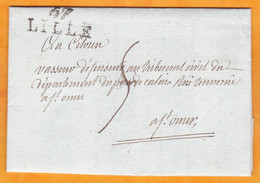 57
LILLE
Au Citoyen
Vasseur défenseur au Tribunal civil du
Département du pas de calais
a St. omer
a St. omer
5